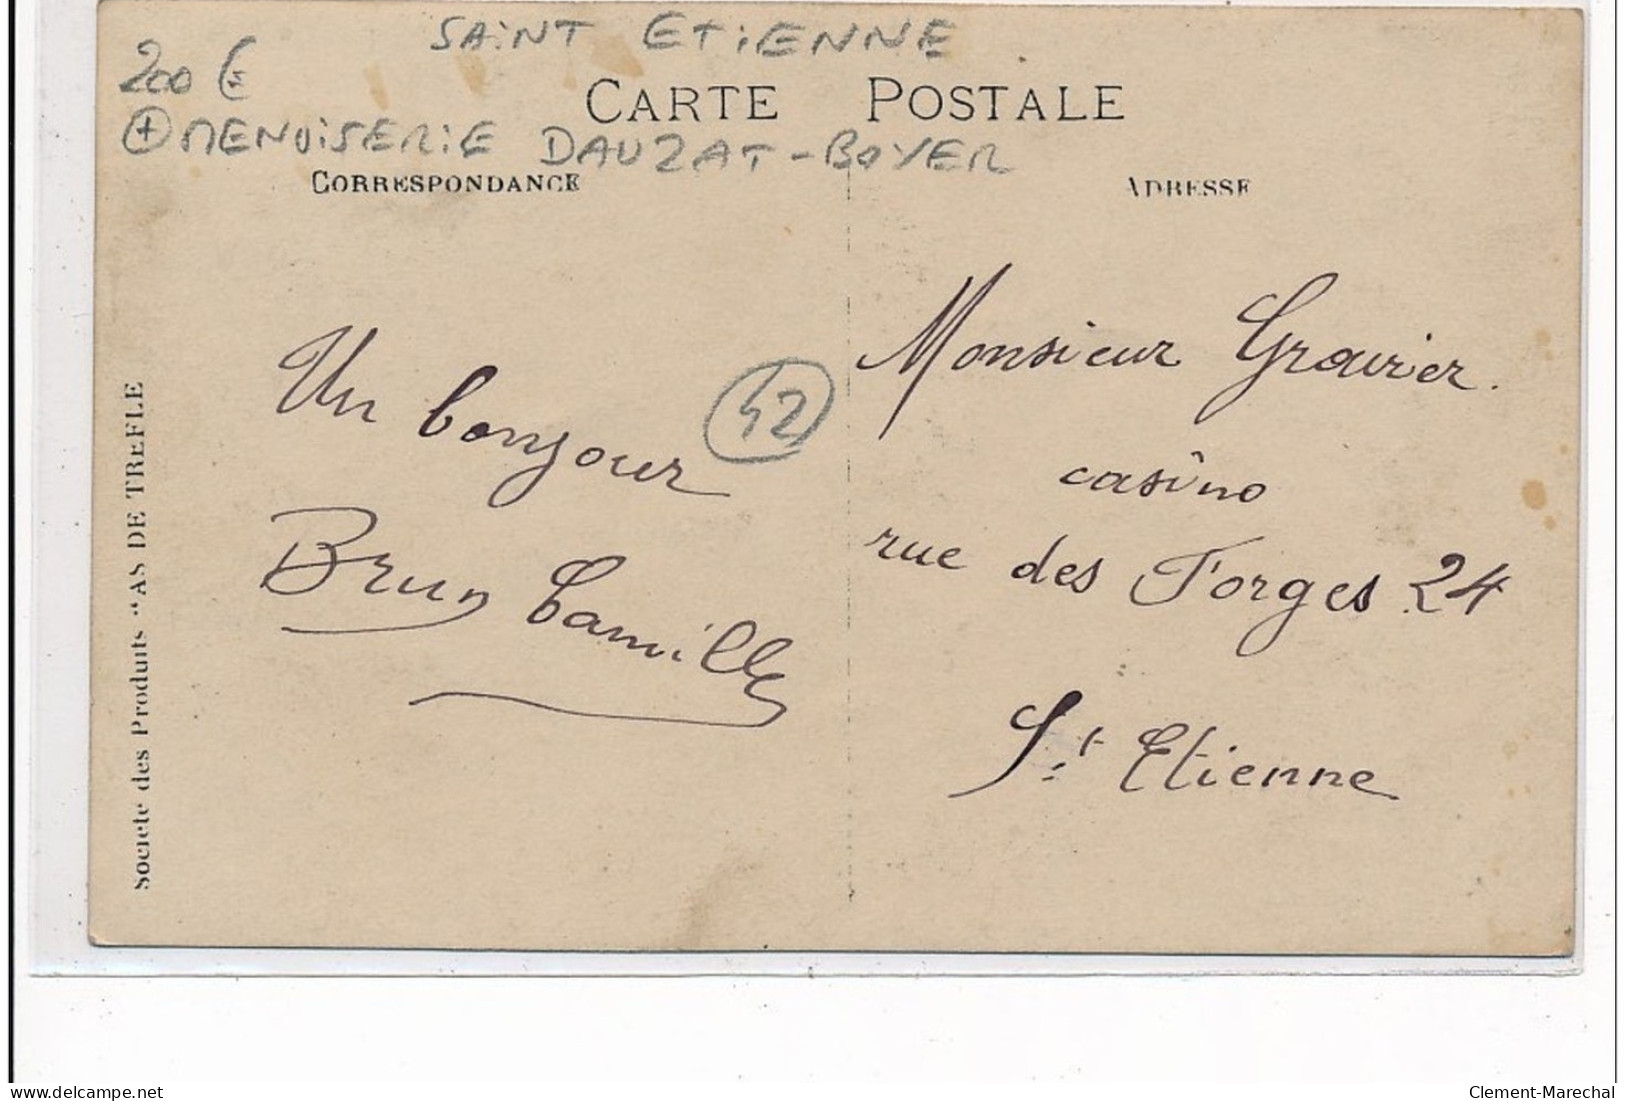 SAINT ETIENNE
200 €
CARTE POSTALE
+ MENUISERIE DAUZAT-BOYER
CORRESPONDANCE
ADRESSE
Un bonjour
42
Brun Camille
Monsieur Gravier.
casino
rue des Forges 24
St Etienne
Societe des Produits "AS DE TREFLE
delcampe.net
Clement-Marechal